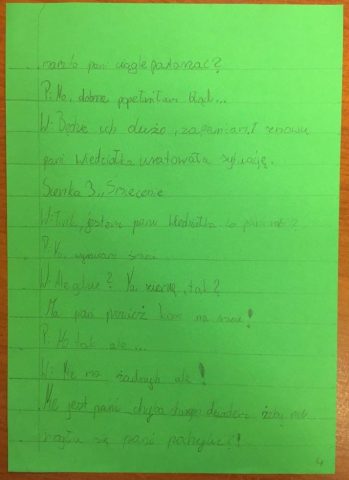 pani wogle powtarzać?
P: No, dobrze popełniłam błąd...
W: Boże ich dużo, zapamiarę! znowu
pani Wiedziałka uratowała sytuację.
Scenka 3 „Śmiecenie
W: Tu ja, jestem pani Wiedziałka co pani robi?
P: Ja, wyrzucam śmieci.
W: Ale gdzie? Na ziemię, tak?
Ma pani przecież kosz na śmieci!
P: No tak ale...
W: Nie ma żadnych ale!
Nie jest pani chyba żeby nie
mogła się pani !
4